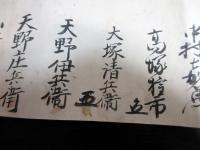 高塚権市
五
大塚清兵衛
五
天野伊兵衛
天野庄兵衛